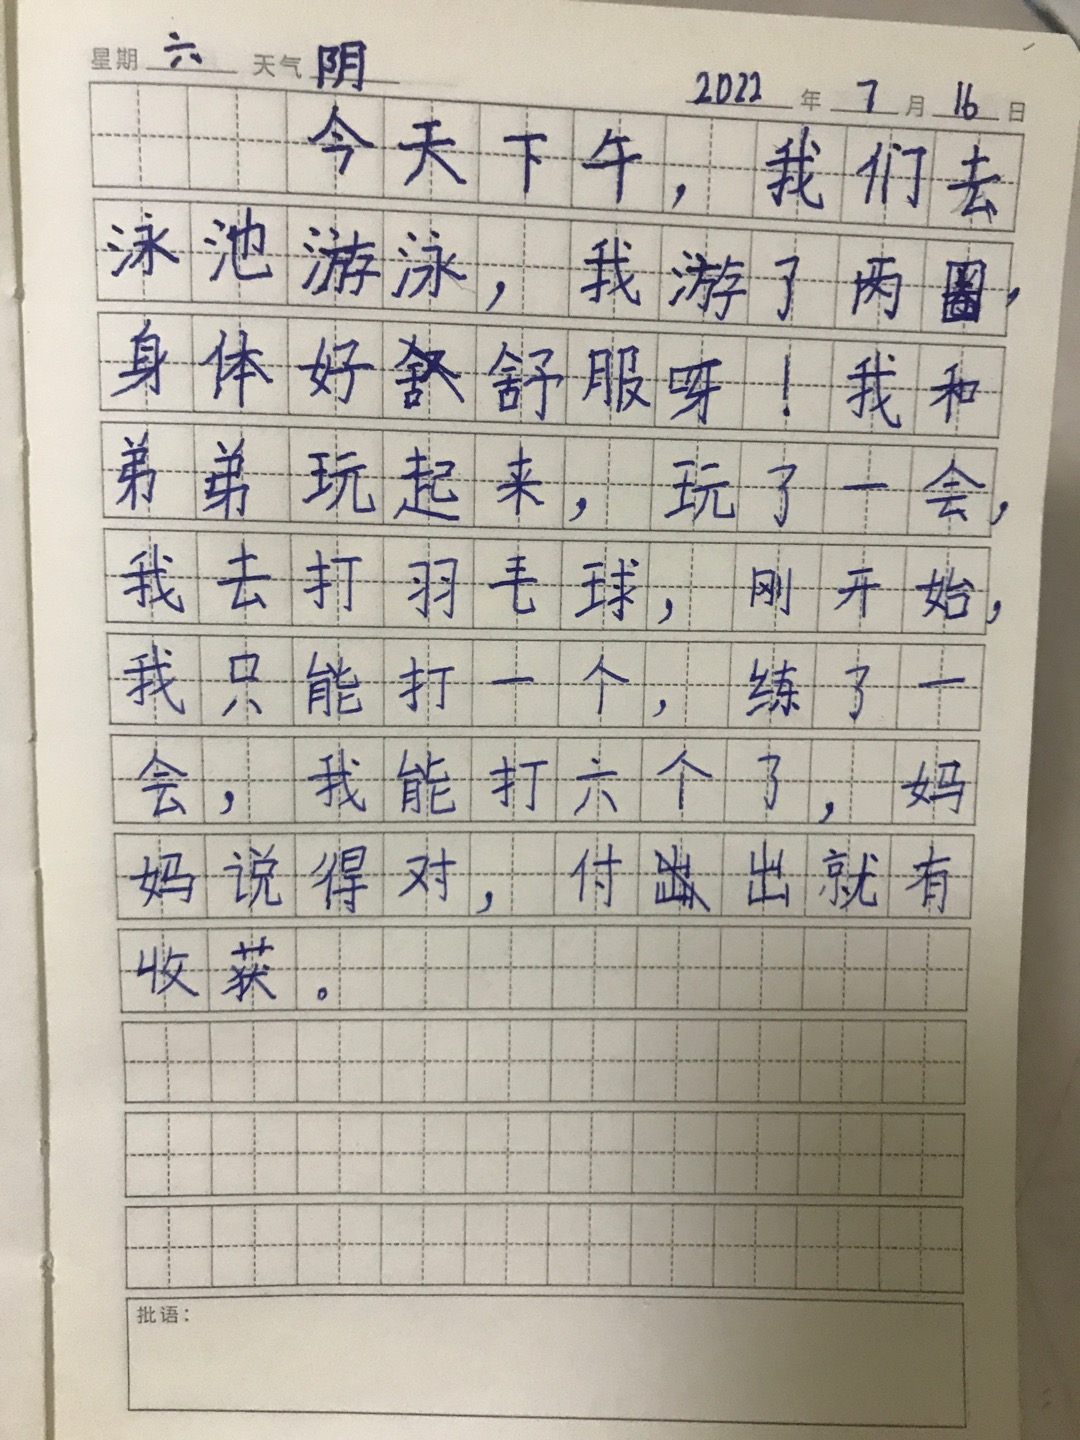 星期 六 天气 阴
2022 年 7 月 16 日
今天下午，我们去
泳池游泳，我游了两圈，
身体好舒服呀！我和
弟弟玩起来，玩了一会，
我去打羽毛球，刚开始，
我只能打一个，练了一
会，我能打六个了，妈
妈说得对，付出就有
收获。
批语：